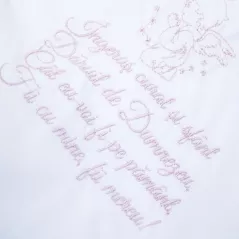 Îngeraş curat şi sfânt
Dăruit de Dumnezeu,
Cât eu voi fi pe pământ,
Tu cu mine, fii mereu!